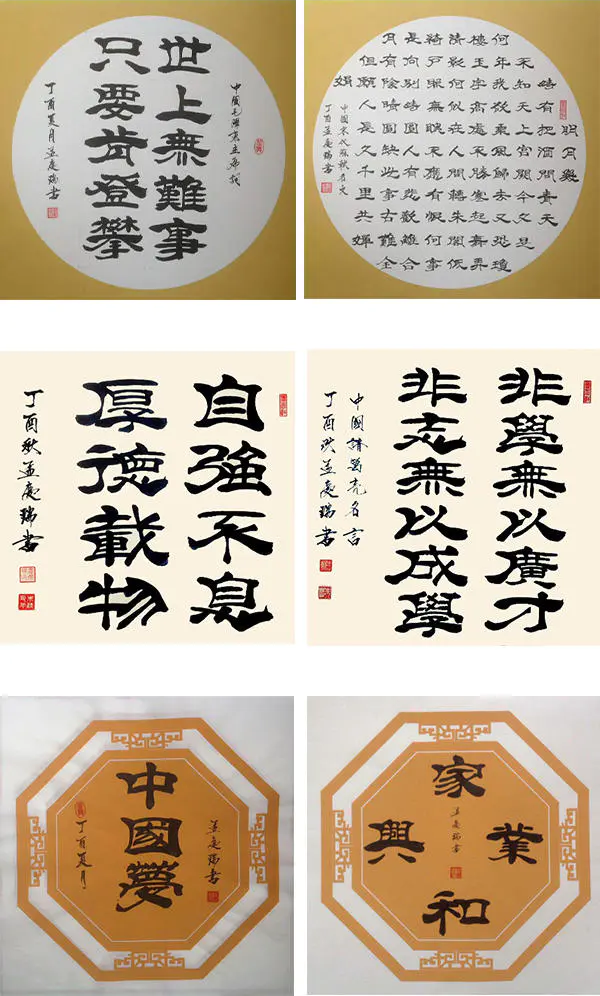 中國毛澤東主席詞
世上無難事
只要肯登攀
丁酉夏月孟慶瑞書
明月幾
時有把酒問青天
不知天上宮闕今夕是
何年我欲乘風歸去又恐瓊
樓玉宇高處不勝寒起舞弄
清影何似在人間轉朱閣低
綺戶照無眠不應有恨何事
長向別時圓人有悲歡離合
月有陰晴圓缺此事古難全
但願人長久千里共嬋
娟
中國宋代蘇軾名文
丁酉夏孟慶瑞書
自強不息
厚德載物
丁酉秋孟慶瑞書
非學無以廣才
非志無以成學
中國諸葛亮名言
丁酉秋孟慶瑞書
孟慶瑞書
中國夢
丁酉夏月
家
業
興
和
孟慶瑞書